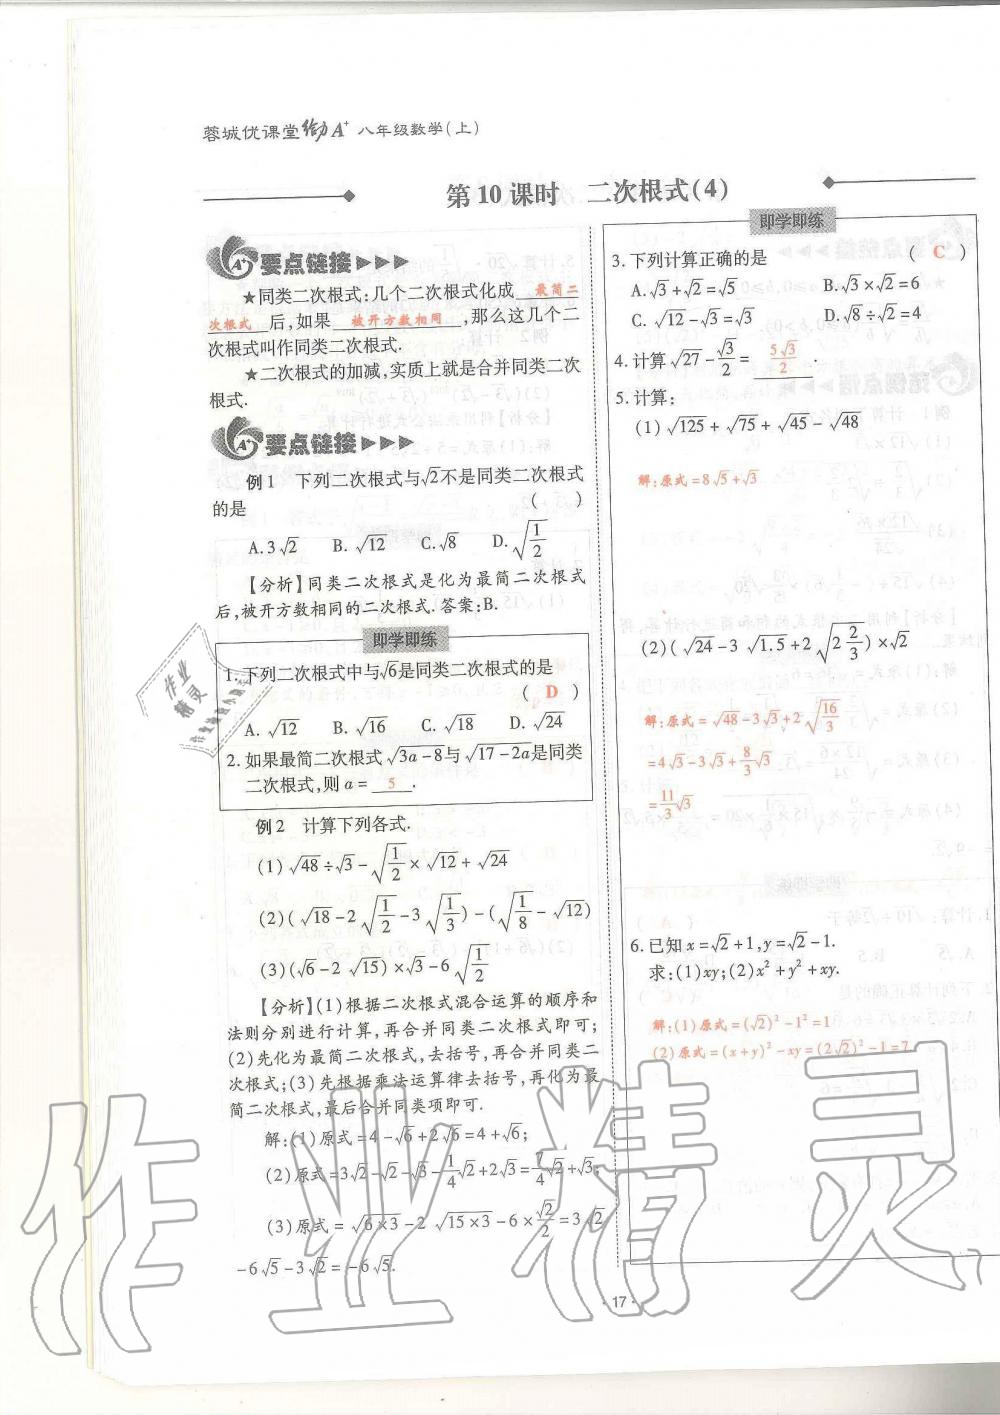 蓉城优课堂 给力A⁺ 八年级数学(上)
第10课时 二次根式(4)
A⁺ 要点链接▶▶▶
★同类二次根式:几个二次根式化成 最简二
次根式 后,如果 被开方数相同 ,那么这几个二
次根式叫作同类二次根式.
★二次根式的加减,实质上就是合并同类二次
根式.
A⁺ 要点链接▶▶▶
例1 下列二次根式与√2不是同类二次根式
的是 ( )
A.3√2 B.√12 C.√8 D.√(1/2)
【分析】同类二次根式是化为最简二次根式
后,被开方数相同的二次根式.答案:B.
即学即练
1.下列二次根式中与√6是同类二次根式的是
( D )
A.√12 B.√16 C.√18 D.√24
2.如果最简二次根式√(3a-8)与√(17-2a)是同类
二次根式,则a= 5 .
例2 计算下列各式.
(1)√48÷√3-√(1/2)×√12+√24
(2)(√18-2√(1/2)-3√(1/3))-(√(1/8)-√12)
(3)(√6-2√15)×√3-6√(1/2)
【分析】(1)根据二次根式混合运算的顺序和
法则分别进行计算,再合并同类二次根式即可;
(2)先化为最简二次根式,去括号,再合并同类二
次根式;(3)先根据乘法运算律去括号,再化为最
简二次根式,最后合并同类项即可.
解:(1)原式=4-√6+2√6=4+√6;
(2)原式=3√2-√2-√3-(1/4)√2+2√3=(7/4)√2+√3;
(3)原式=√(6×3)-2√(15×3)-6×(√2/2)=3√2
-6√5-3√2=-6√5.
即学即练
3.下列计算正确的是 ( C )
A.√3+√2=√5 B.√3×√2=6
C.√12-√3=√3 D.√8÷√2=4
4.计算√27-√3/2= 5√3/2 .
5.计算:
(1)√125+√75+√45-√48
解:原式=8√5+√3
(2)(√24-3√1.5+2√(2 2/3))×√2
解:原式=√48-3√3+2√(16/3)
=4√3-3√3+(8/3)√3
=(11/3)√3
6.已知x=√2+1,y=√2-1.
求:(1)xy;(2)x²+y²+xy.
解:(1)原式=(√2)²-1²=1
(2)原式=(x+y)²-xy=(2√2)²-1=7
· 17 ·
作业精灵
作业
精灵